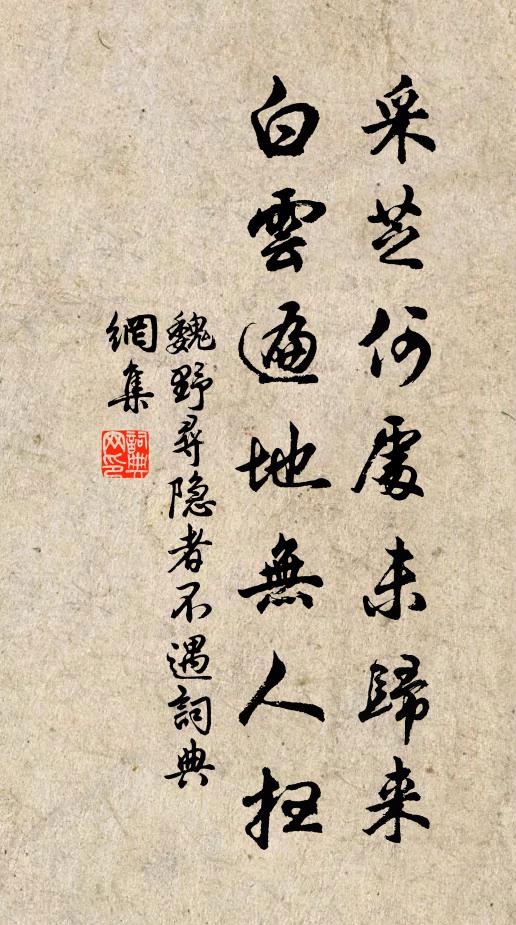 采芝何處未歸来
白雲遍地無人掃
魏野尋隐者不遇詞典
網集
詞典
网印